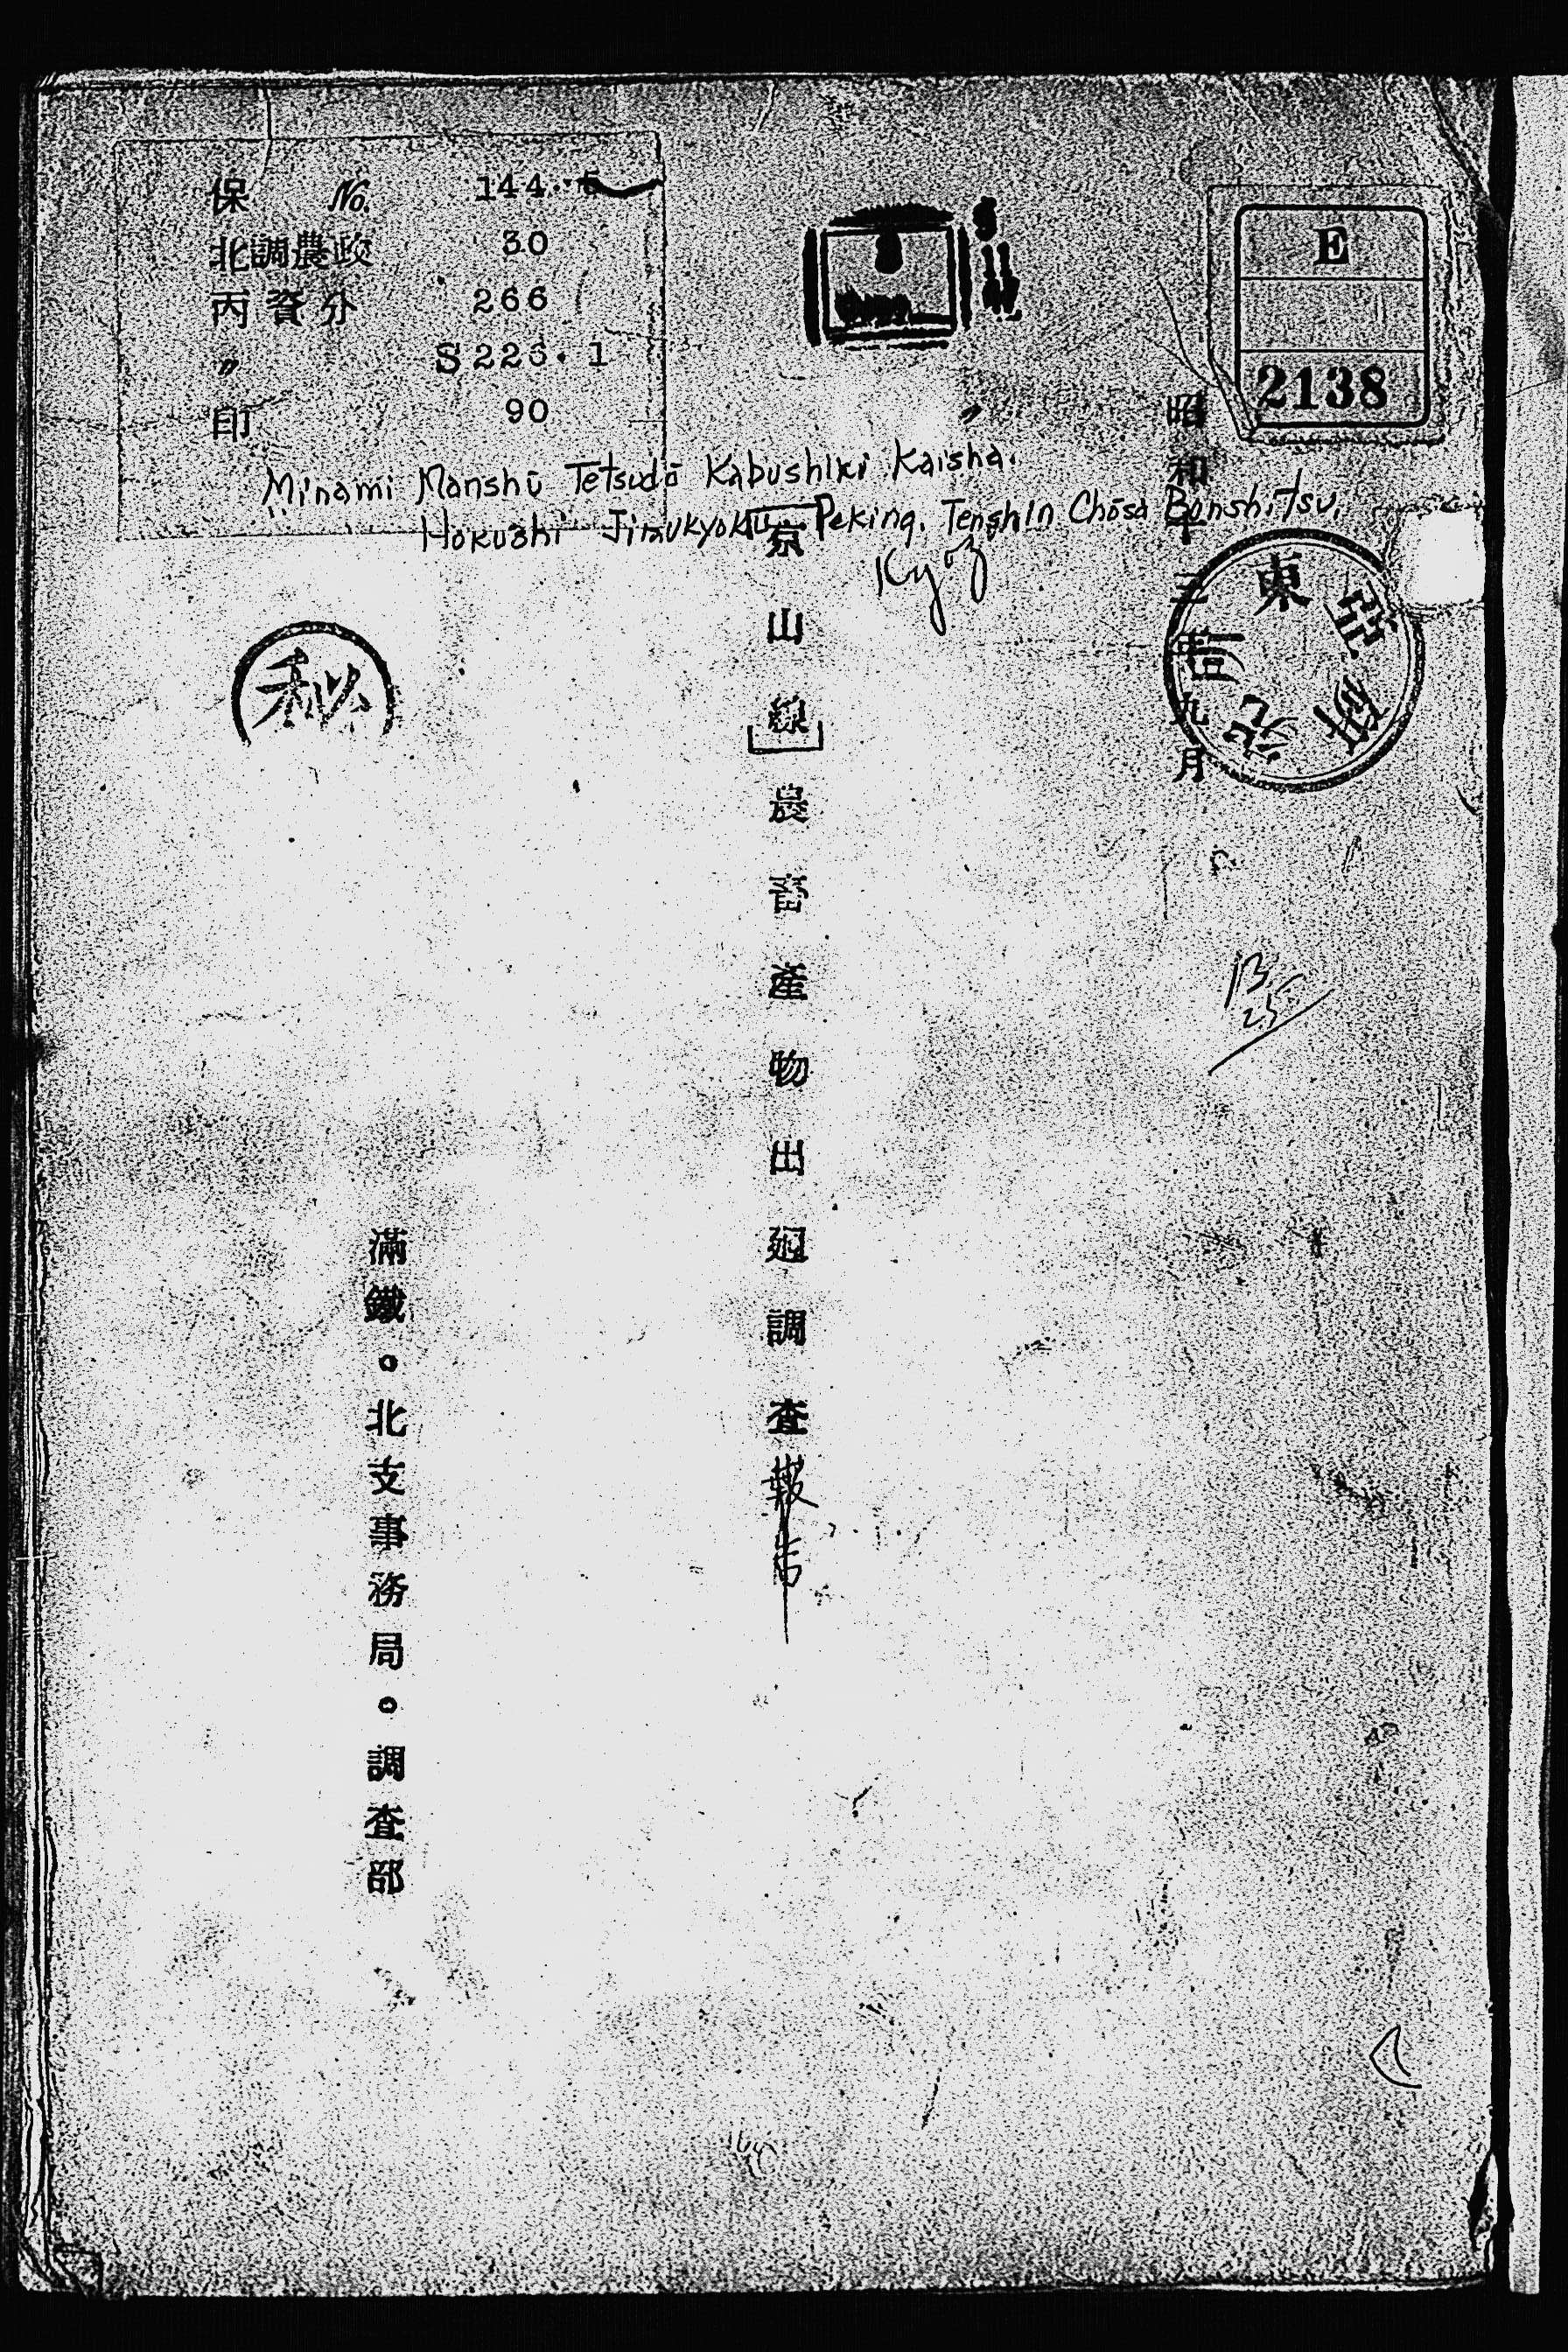 保 No. 144.
北調農政 30
丙資分 266
〃 S 226.1
印 90
E
2138
Minami Manshū Tetsudō Kabushiki Kaisha.
Hokushi Jimukyoku Peking. Tenshin Chōsa Bunshitsu.
昭和十三年九月
東亞研
13.
25
「京山線」農畜產物出廻調查報告
秘
滿鐵。北支事務局。調查部